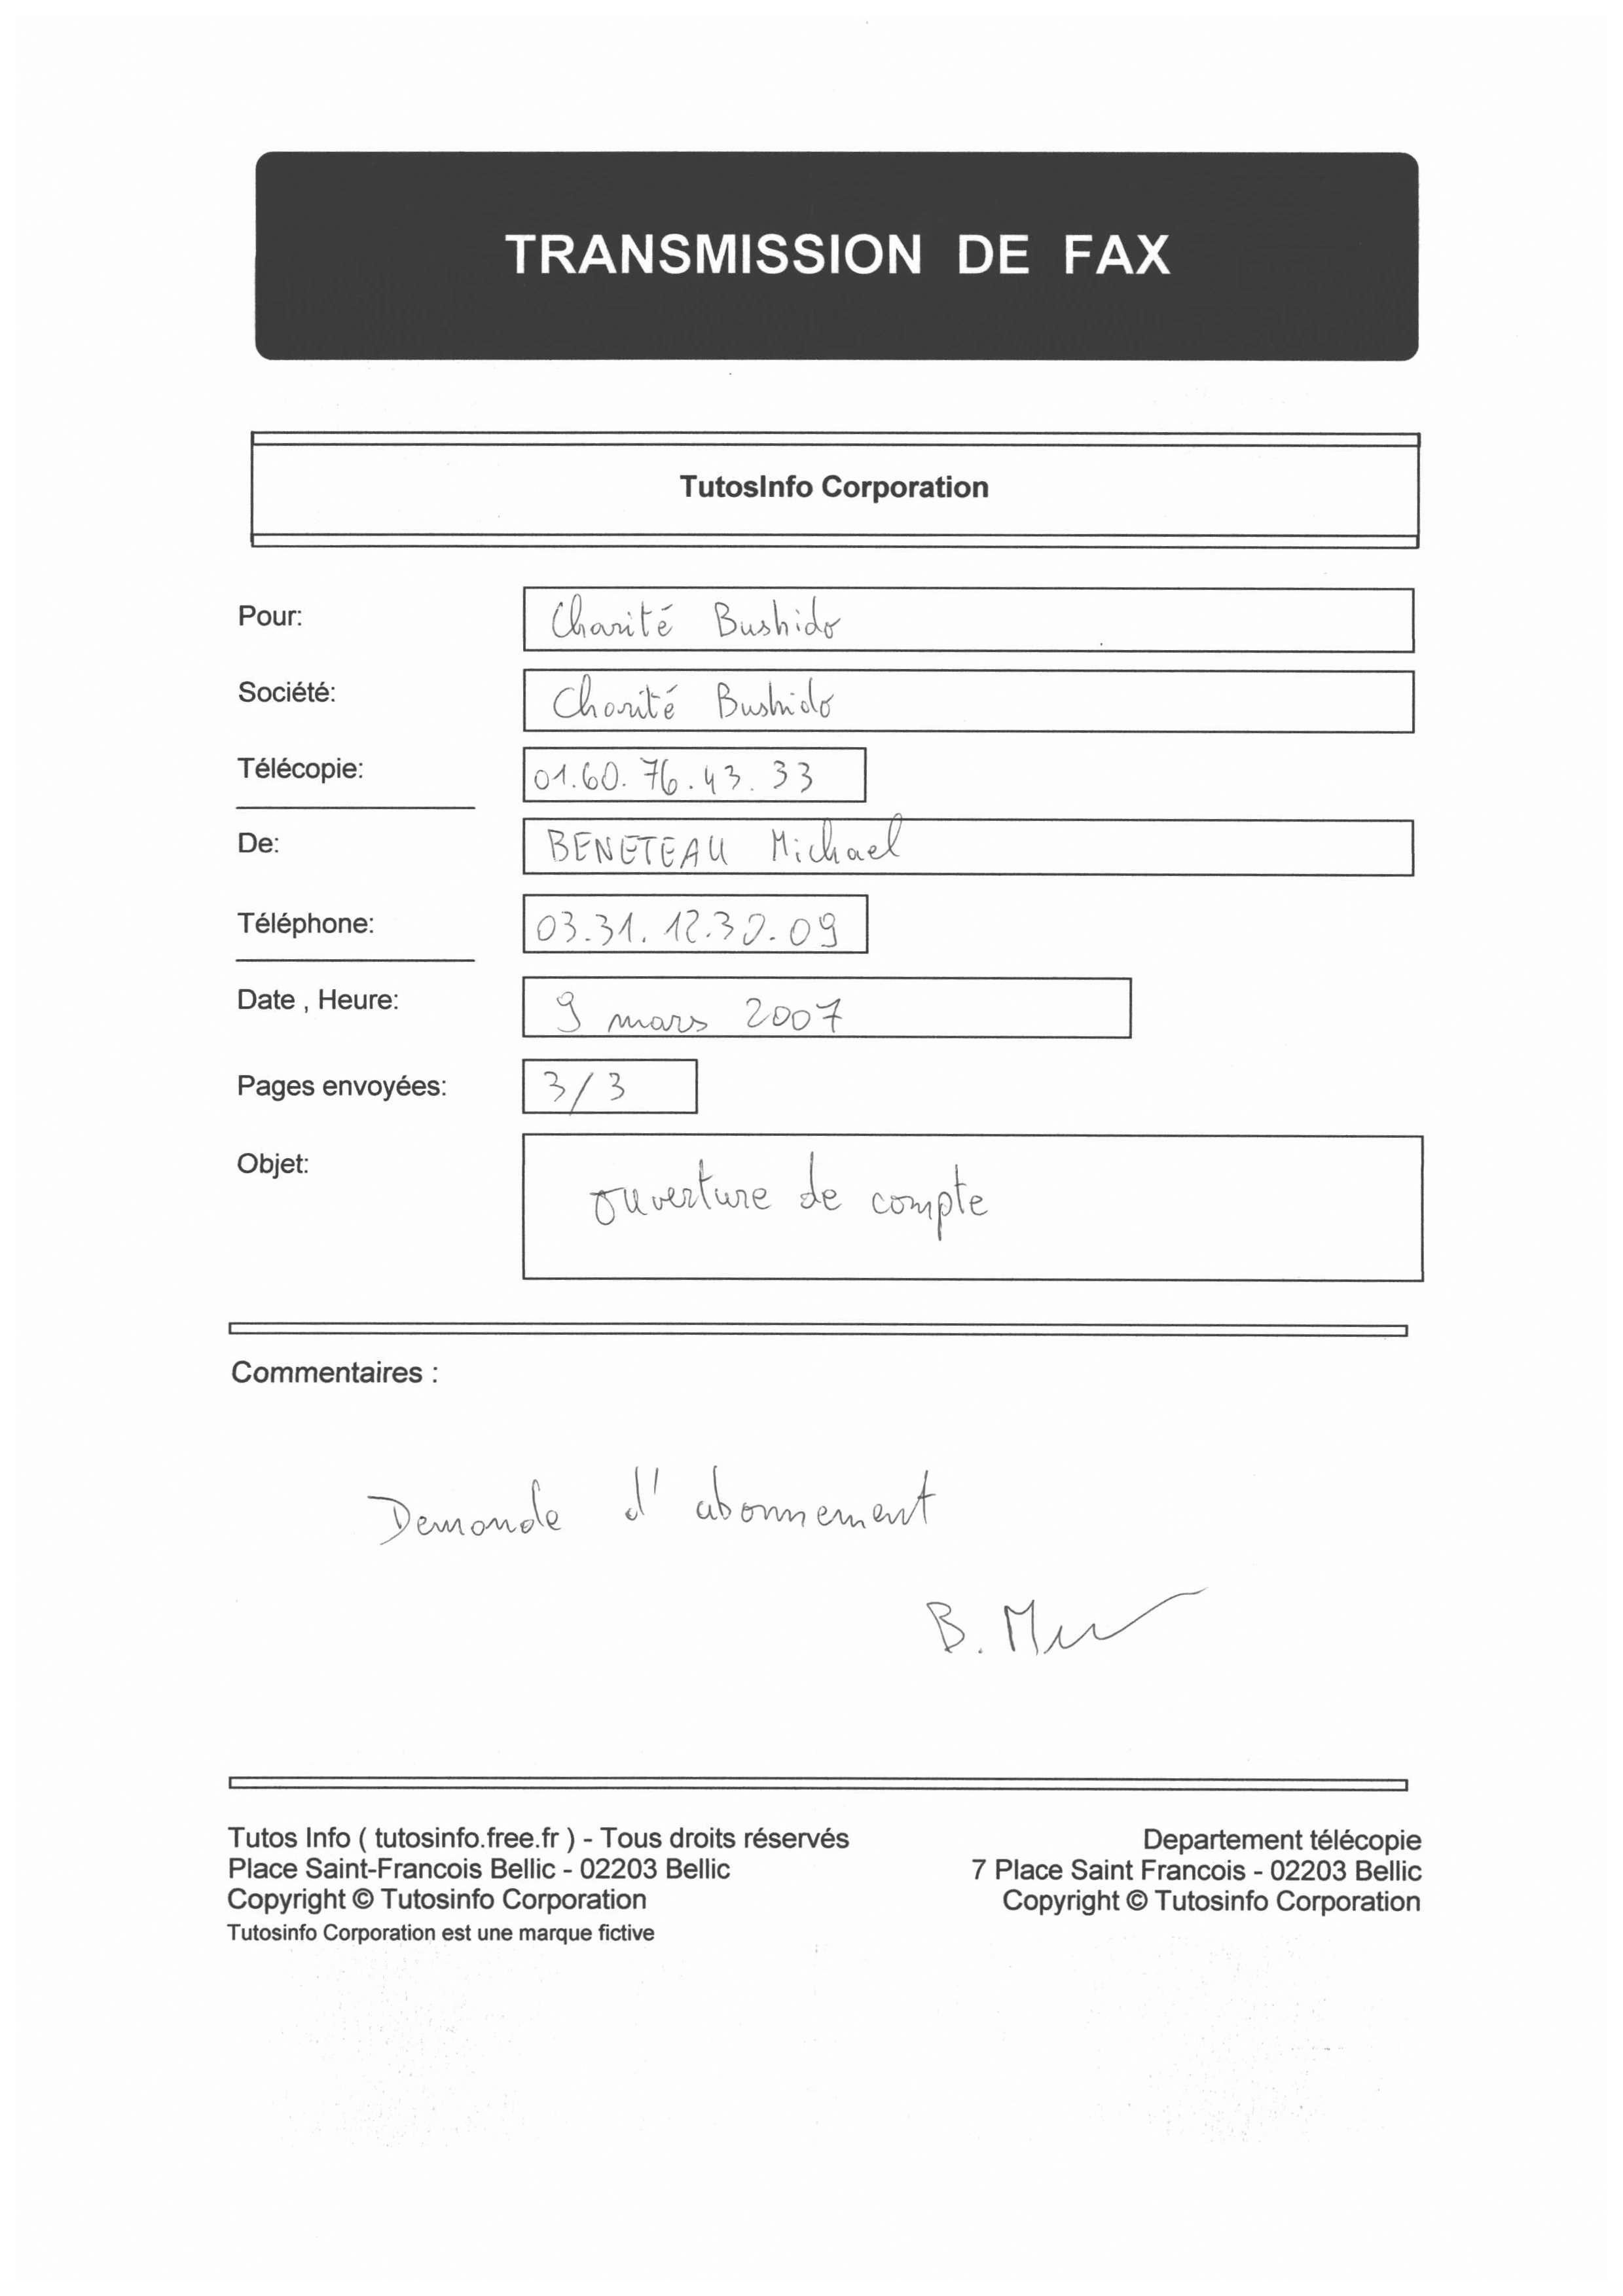 TRANSMISSION DE FAX
TutosInfo Corporation
Pour: Charité Bushido
Société: Charité Bushido
Télécopie: 01.60.76.43.33
De: BENETEAU Michael
Téléphone: 03.31.12.30.09
Date , Heure: 9 mars 2007
Pages envoyées: 3/3
Objet: ouverture de compte
Commentaires :
Demande d'abonnement
B.
Tutos Info ( tutosinfo.free.fr ) - Tous droits réservés
Place Saint-Francois Bellic - 02203 Bellic
Copyright © Tutosinfo Corporation
Tutosinfo Corporation est une marque fictive
Departement télécopie
7 Place Saint Francois - 02203 Bellic
Copyright © Tutosinfo Corporation